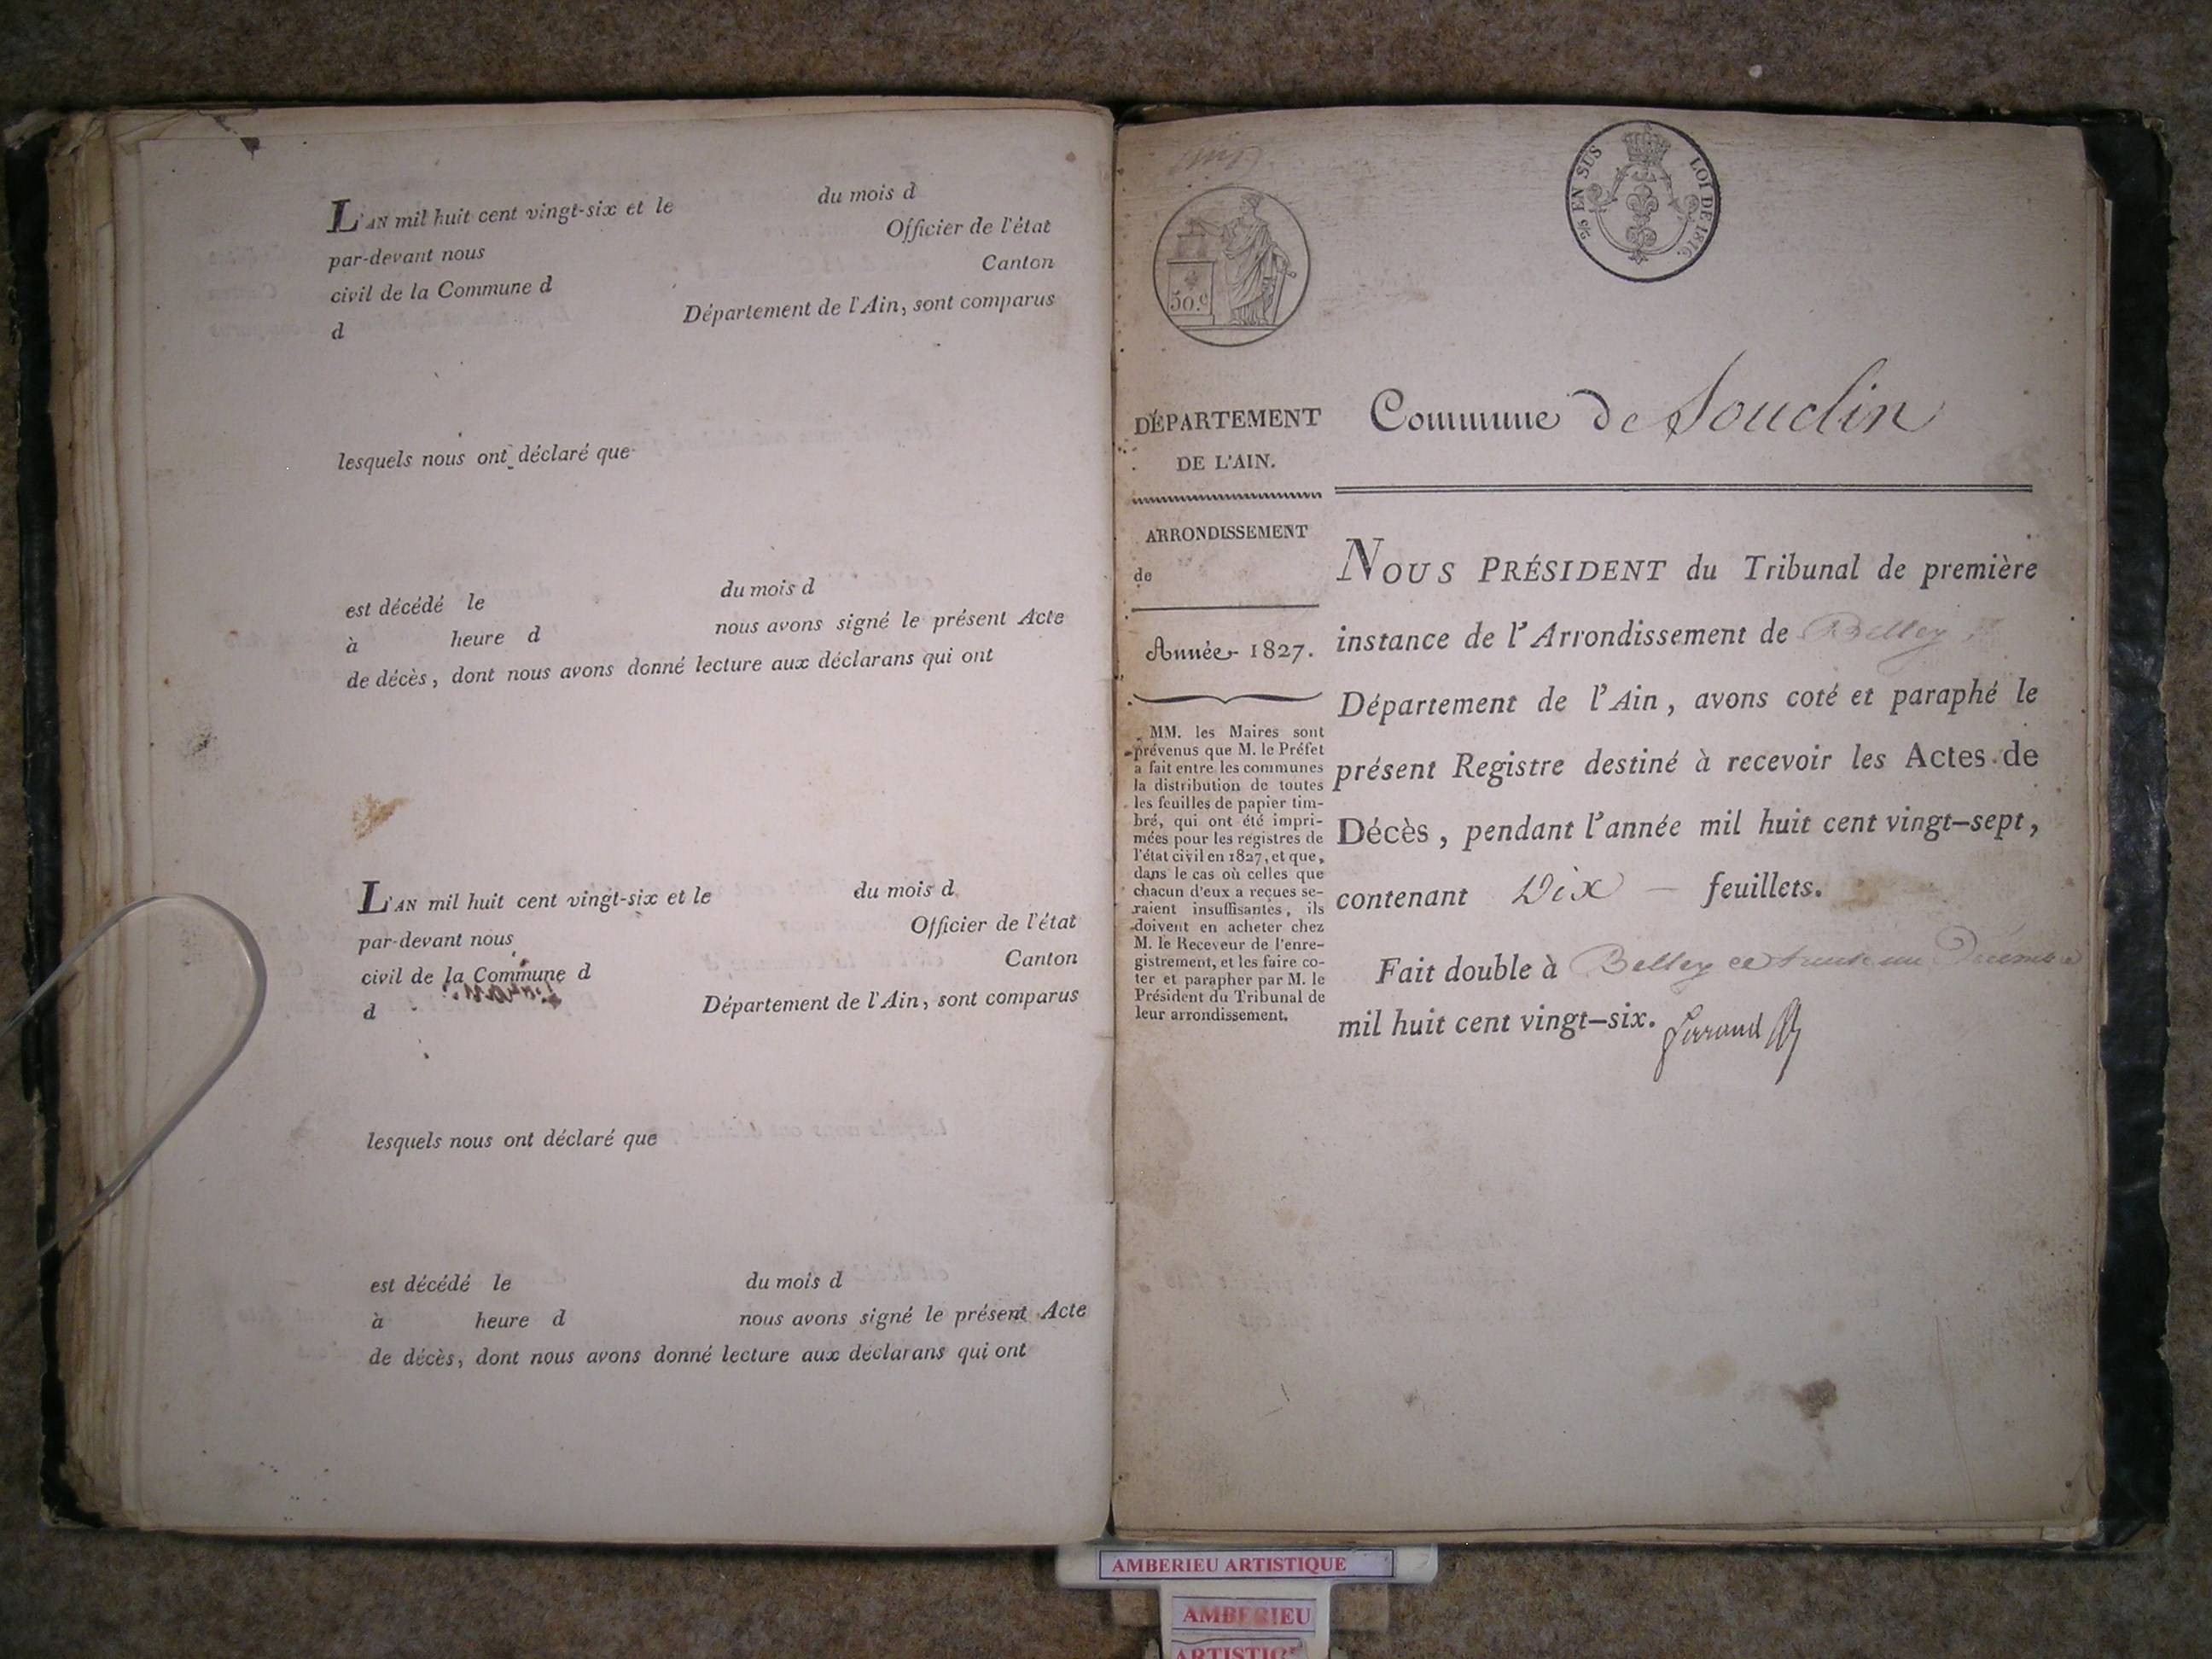 L'AN mil huit cent vingt-six et le du mois d
par-devant nous Officier de l'état
civil de la Commune d Canton
d Département de l'Ain, sont comparus
lesquels nous ont déclaré que
est décédé le du mois d
à heure d nous avons signé le présent Acte
de décès, dont nous avons donné lecture aux déclarans qui ont
L'AN mil huit cent vingt-six et le du mois d
par-devant nous Officier de l'état
civil de la Commune d Canton
d Département de l'Ain, sont comparus
lesquels nous ont déclaré que
est décédé le du mois d
à heure d nous avons signé le présent Acte
de décès, dont nous avons donné lecture aux déclarans qui ont
50.c
EN SUS LOI DE 1816.
DÉPARTEMENT
DE L'AIN.
ARRONDISSEMENT
de
Année 1827.
MM. les Maires sont
prévenus que M. le Préfet
a fait entre les communes
la distribution de toutes
les feuilles de papier tim-
bré, qui ont été impri-
mées pour les registres de
l'état civil en 1827, et que,
dans le cas où celles que
chacun d'eux a reçues se-
raient insuffisantes, ils
doivent en acheter chez
M. le Receveur de l'enre-
gistrement, et les faire co-
ter et parapher par M. le
Président du Tribunal de
leur arrondissement.
Commune de Souclin
NOUS PRÉSIDENT du Tribunal de première
instance de l'Arrondissement de Belley
Département de l'Ain, avons coté et paraphé le
présent Registre destiné à recevoir les Actes de
Décès, pendant l'année mil huit cent vingt-sept,
contenant Dix feuillets.
Fait double à Belley ce trente un Décembre
mil huit cent vingt-six.
AMBERIEU ARTISTIQUE
AMBERIEU
ARTISTIQUE